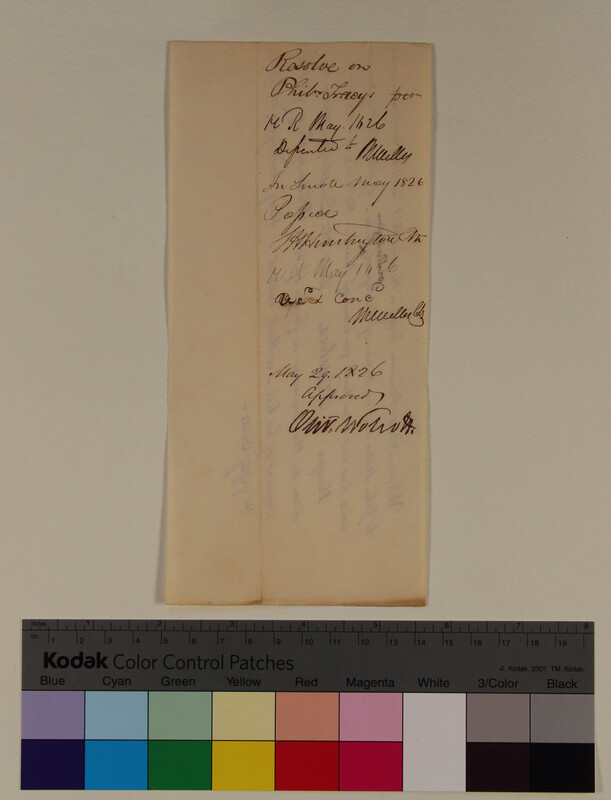 Resolve on
Phil. Tracy's
H R May. 1826
In Senate May 1826
Passed
Huntington
H R May 1826
rec'd conc'd
Miller Clk
May 29. 1826
Approved
Oliv. Wolcott.
inches 1 2 3 4 5 6 7 8
cm 1 2 3 4 5 6 7 8 9 10 11 12 13 14 15 16 17 18 19
Kodak Color Control Patches
© Kodak, 2007 TM: Kodak
Blue Cyan Green Yellow Red Magenta White 3/Color Black